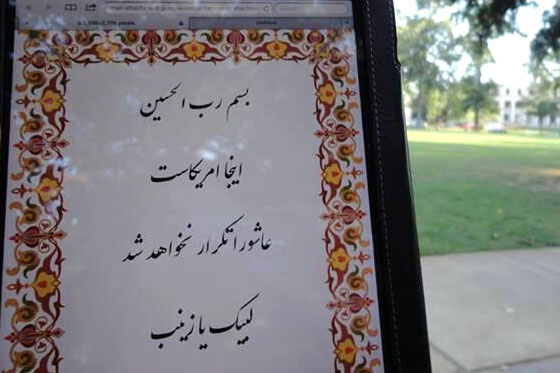 بسم رب الحسین
اینجا امریکاست
عاشورا تکرار نخواهد شد
لبیک یا زینب